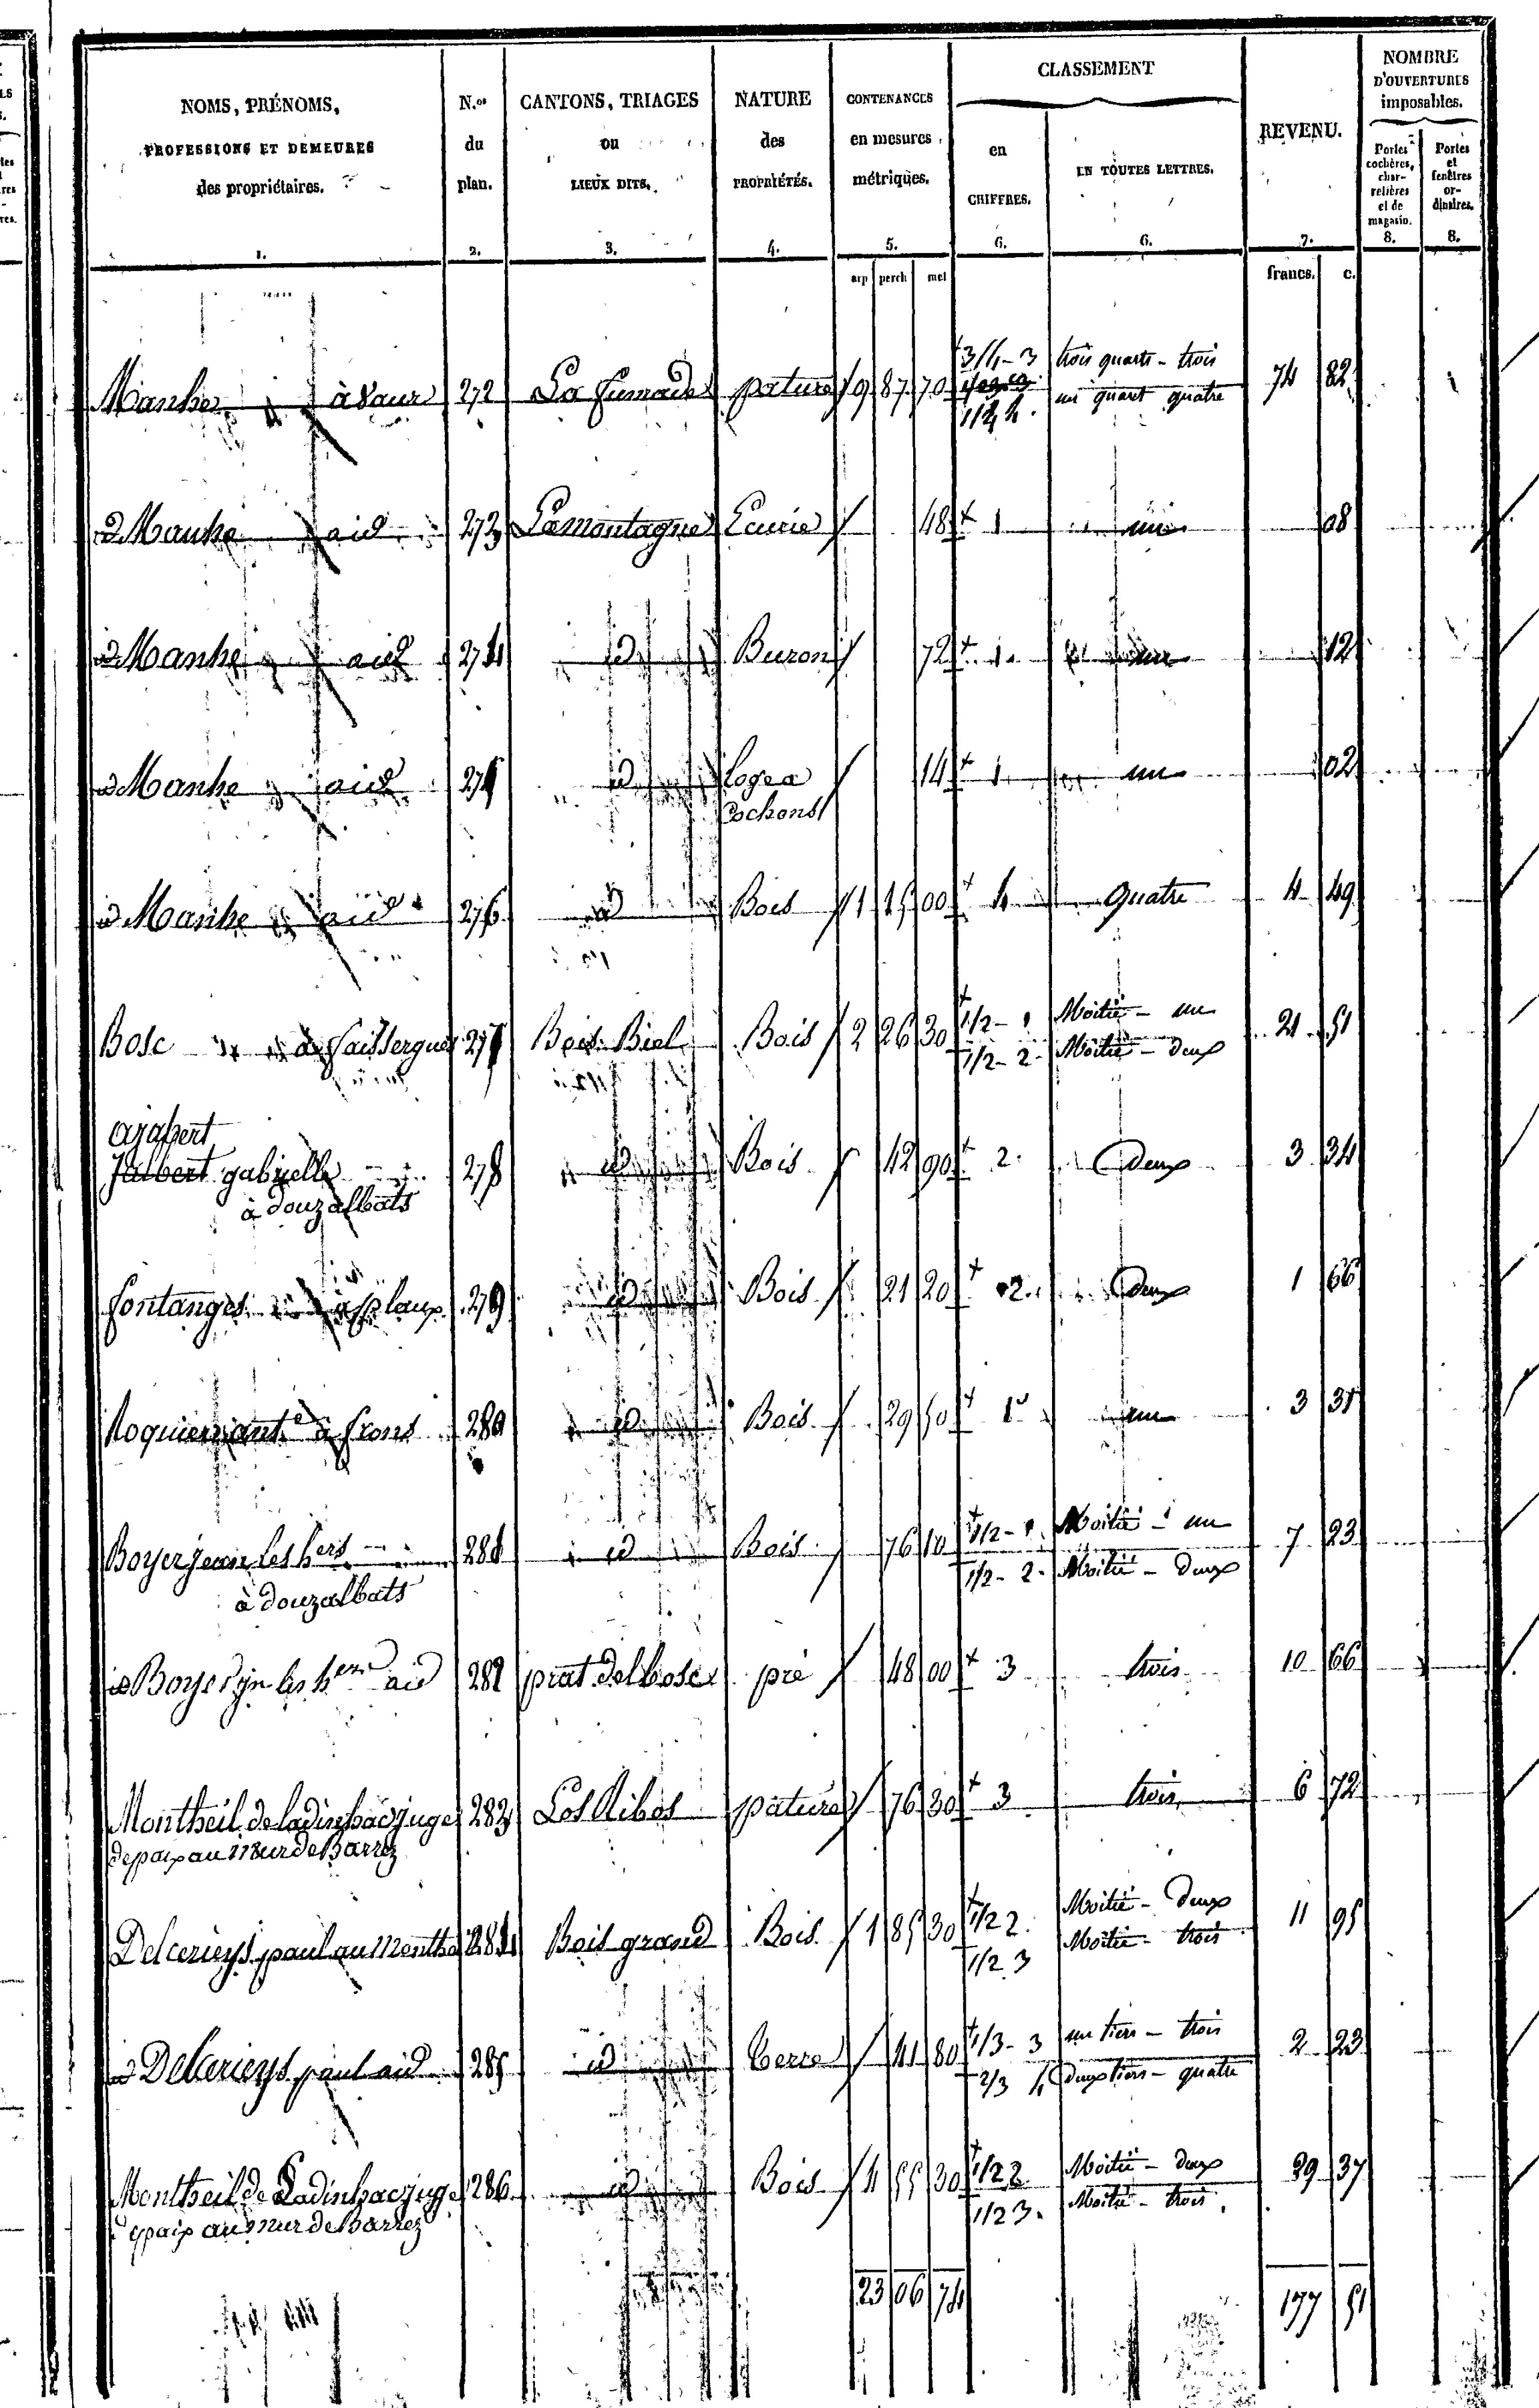 NOMS, PRÉNOMS,
PROFESSIONS ET DEMEURES
des propriétaires.
1.
N.os
du
plan.
2.
CANTONS, TRIAGES
ou
LIEUX DITS.
3.
NATURE
des
PROPRIÉTÉS.
4.
CONTENANCES
en mesures
métriques.
5.
CLASSEMENT
en
CHIFFRES.
6.
EN TOUTES LETTRES.
6.
REVENU.
7.
NOMBRE
D'OUVERTURES
imposables.
Portes
cochères,
char-
retières
et de
magasin.
8.
Portes
et
fenêtres
or-
dinaires.
8.
arp perch met
francs. c.
Manhe à Vaur 272 La fumade pature 9 87 70 3/4 - 3 trois quarts - trois 74 82
1/4 4. un quart quatre
id Manhe a id 273 Lamontagne Ecurie 48 1 un 08
id Manhe a id 274 id Buron 72 1 un 12
id Manhe a id 275 id loge a 14 1 un 02
Cochons
id Manhe a id 276 id Bois 1 15 00 4 quatre 4 49
Bosc à Saissergues 277 Bois Biel Bois 2 26 30 1/2 - 1 Moitié - un 21 51
1/2 - 2 Moitié - deux
Ajalbert
Jalbert gabrielle 278 id Bois 42 90 2 deux 3 34
à douzalbats
fontanges 279 id Bois 21 20 2 deux 1 66
à frons 280 id Bois 29 50 1 un 3 31
Boyer jean les hers 281 id Bois 76 10 1/2 - 1 Moitié - un 7 23
à douzalbats 1/2 - 2 Moitié - deux
id Boyer jn les hers a id 282 prat Delbosc pré 48 00 3 trois 10 66
Montheil de ladinhac juge 283 Los Ribos pature 76 30 3 trois 6 72
de paix au Mur de Barrez
Delcerieys paul au Monthe 284 Bois grand Bois 1 85 30 1/2 2 Moitié - deux 11 95
1/2 3 Moitié - trois
id Delcerieys paul a id 285 id terre 41 80 1/3 - 3 un tiers - trois 2 23
2/3 4 deux tiers - quatre
Montheil de Ladinhac juge 286 id Bois 4 55 30 1/2 2 Moitié - deux 29 37
de paix au Mur de Barrez 1/2 3 Moitié - trois
23 06 74 177 51